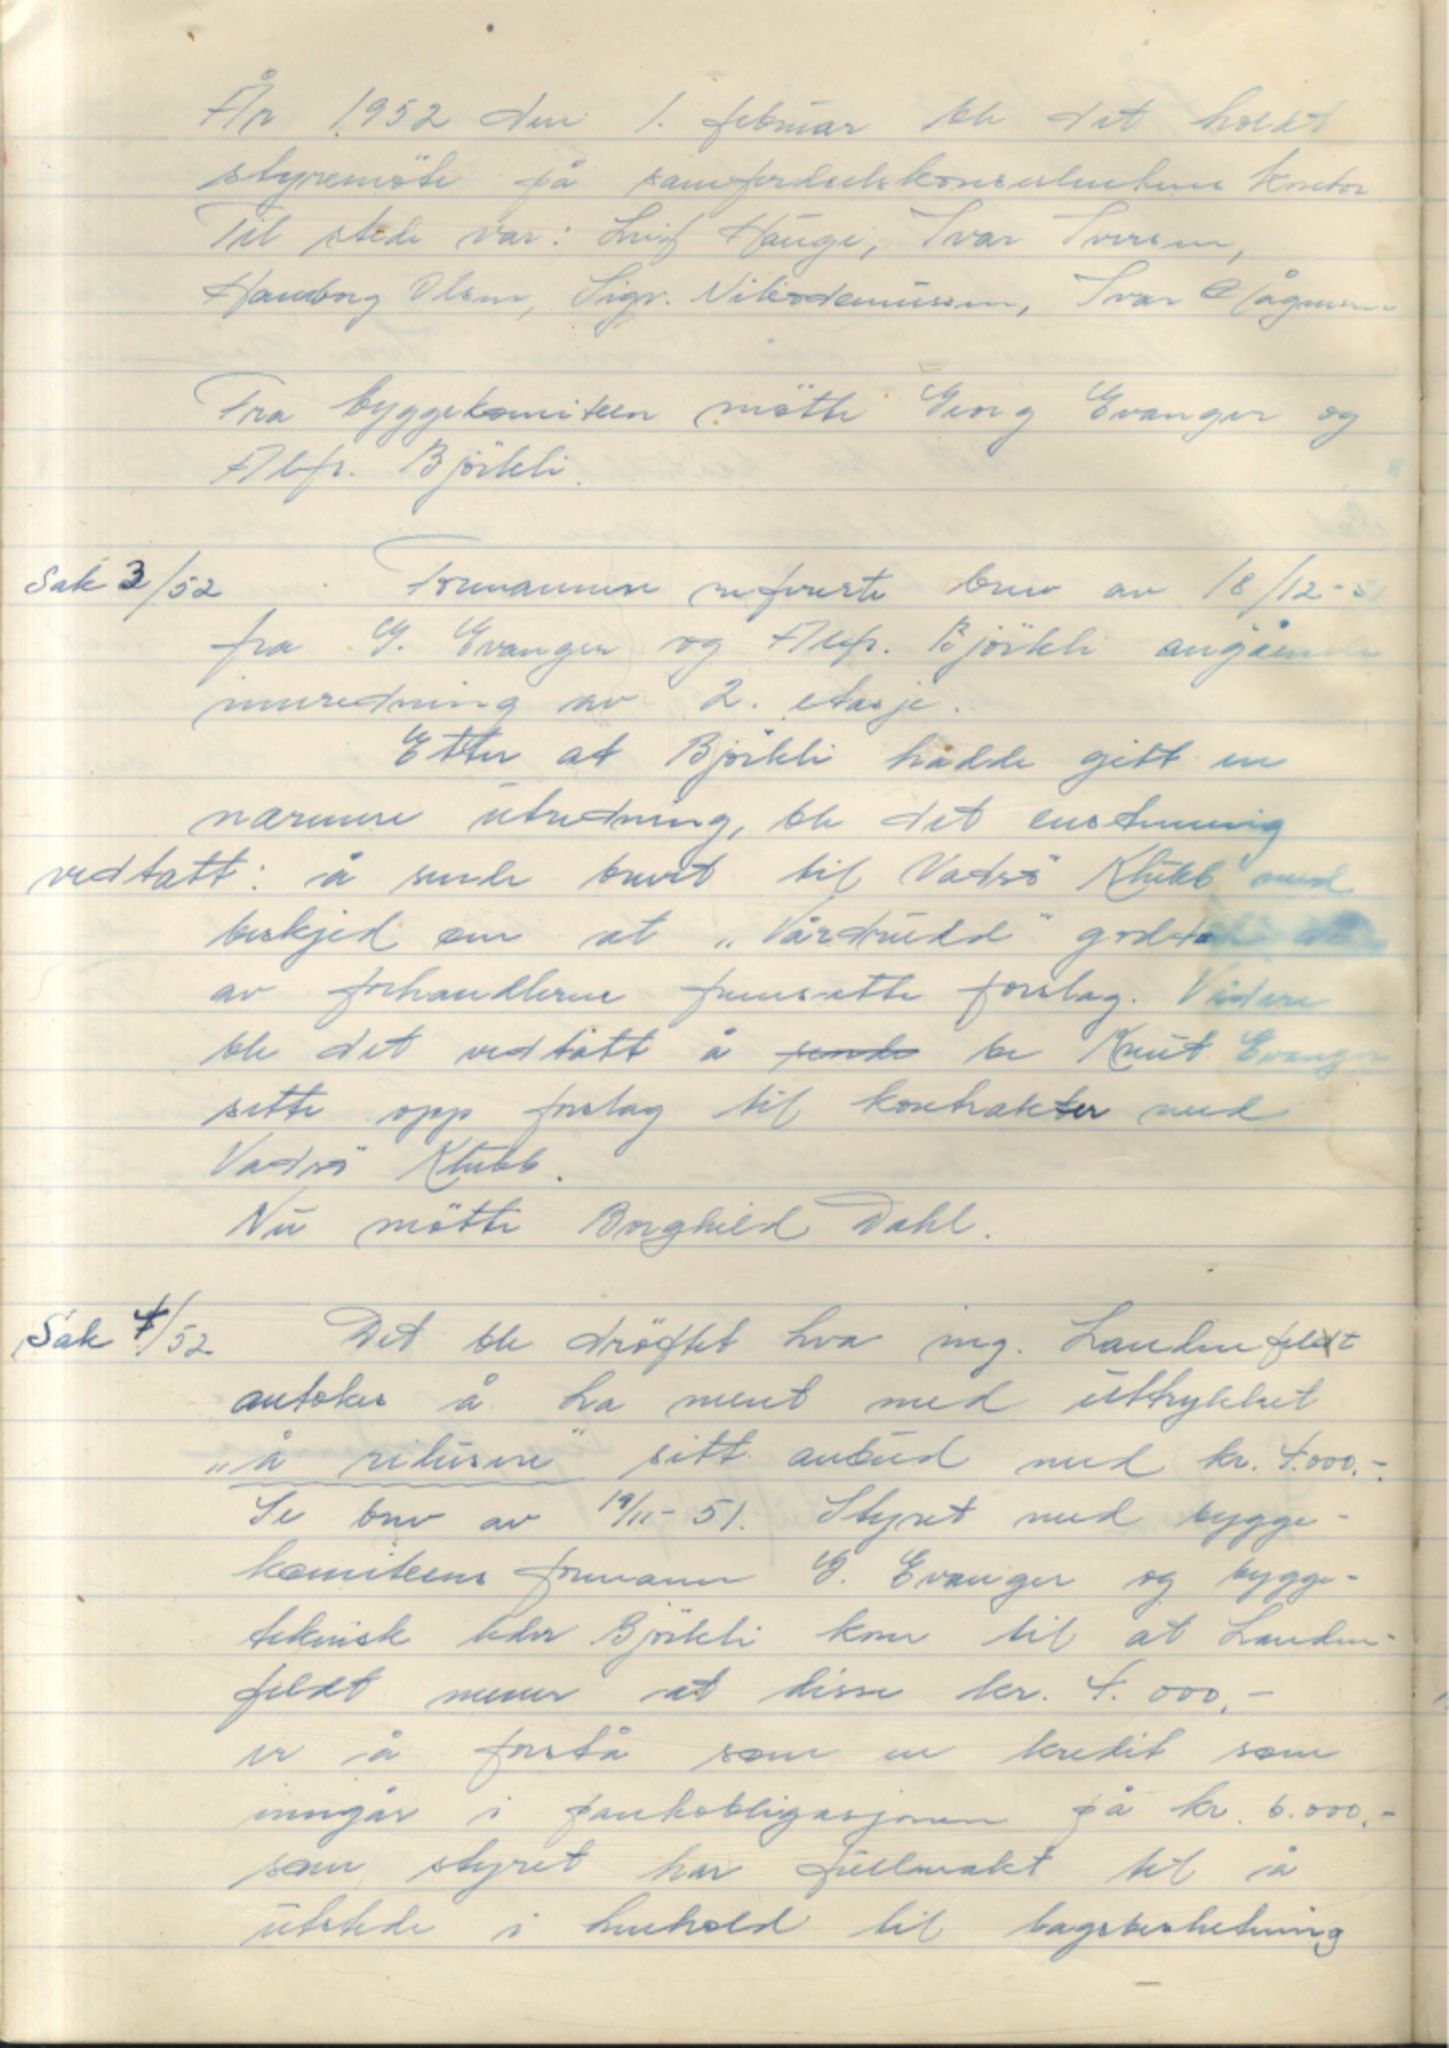 År 1952 den 1. februar ble det holdt
styremöte på samferdselskonsulentens kontor
Til stede var: Leif Hauge, Ivar Iversen,
Hamborg Olsen, Sigr. Nikodemussen, Ivar
Fra byggekomiteen møtte Georg Evanger og
Alfr. Björkli.
Sak 3/52 Formannen refererte brev av 18/12-51
fra G. Evanger og Alfr. Björkli angående
innredning av 2. etasje.
Etter at Björkli hadde gitt en
nærmere utredning, ble det enstemmig
vedtatt: å sende brevet til Vadsö Klubb med
beskjed om at „Vårdrudd" godtok det
av forhandlerne fremsatte forslag. Videre
ble det vedtatt å sende be Knut Evanger
sette opp forslag til kontrakter med
Vadsö Klubb.
Nu møtte Borghild Dahl.
Sak 4/52 Det ble dröftet hva ing. Landenfeldt
antokes å ha ment med uttrykket
„å rekusere" sitt anbud med kr. 4.000.-
Se brev av 19/11-51. Styret med bygge-
komiteens formann G. Evanger og bygge-
teknisk leder Björkli kom til at Landen-
feldt mener at disse kr. 4.000,-
er å forstå som en kredit som
inngår i panteobligasjonen på kr. 6.000,-
som styret har fullmakt til å
utstede i henhold til lagsbeslutning